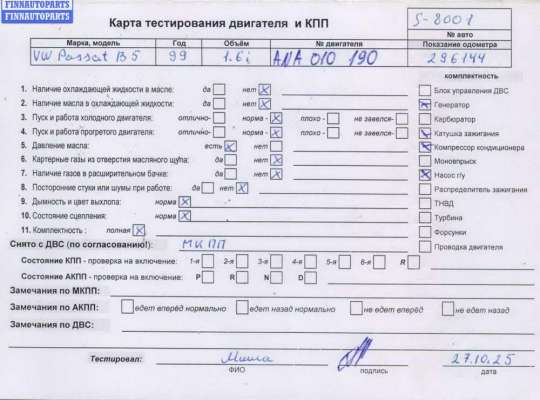 FINNAUTOPARTS
FINNAUTOPARTS
Карта тестирования двигателя и КПП
S-8001
№ авто
Марка, модель Год Объём № двигателя Показание одометра
VW Passat B5 99 1.6i ANA 010 190 296144
комплектность
1. Наличие охлаждающей жидкости в масле: да нет
2. Наличие масла в охлаждающей жидкости: да нет
3. Пуск и работа холодного двигателя: отлично- норма - плохо - не завелся-
4. Пуск и работа прогретого двигателя: отлично- норма - плохо - не завелся-
5. Давление масла: есть нет
6. Картерные газы из отверстия масляного щупа: да нет
7. Наличие газов в расширительном бачке: да нет
8. Посторонние стуки или шумы при работе: да нет
9. Дымность и цвет выхлопа: норма
10. Состояние сцепления: норма
11. Комплектность : полная
Блок управления ДВС
Генератор
Карбюратор
Катушка зажигания
Компрессор кондиционера
Моновпрыск
Насос г/у
Распределитель зажигания
ТНВД
Турбина
Форсунки
Проводка двигателя
Снято с ДВС (по согласованию!): МКПП
Состояние КПП - проверка на включение: 1-я 2-я 3-я 4-я 5-я 6-я R
Состояние АКПП - проверка на включение: P R N D
Замечания по МКПП:
Замечания по АКПП: едет вперёд нормально едет назад нормально не едет вперёд не едет назад
Замечания по ДВС:
Тестировал: Миша 27.10.25
ФИО подпись дата